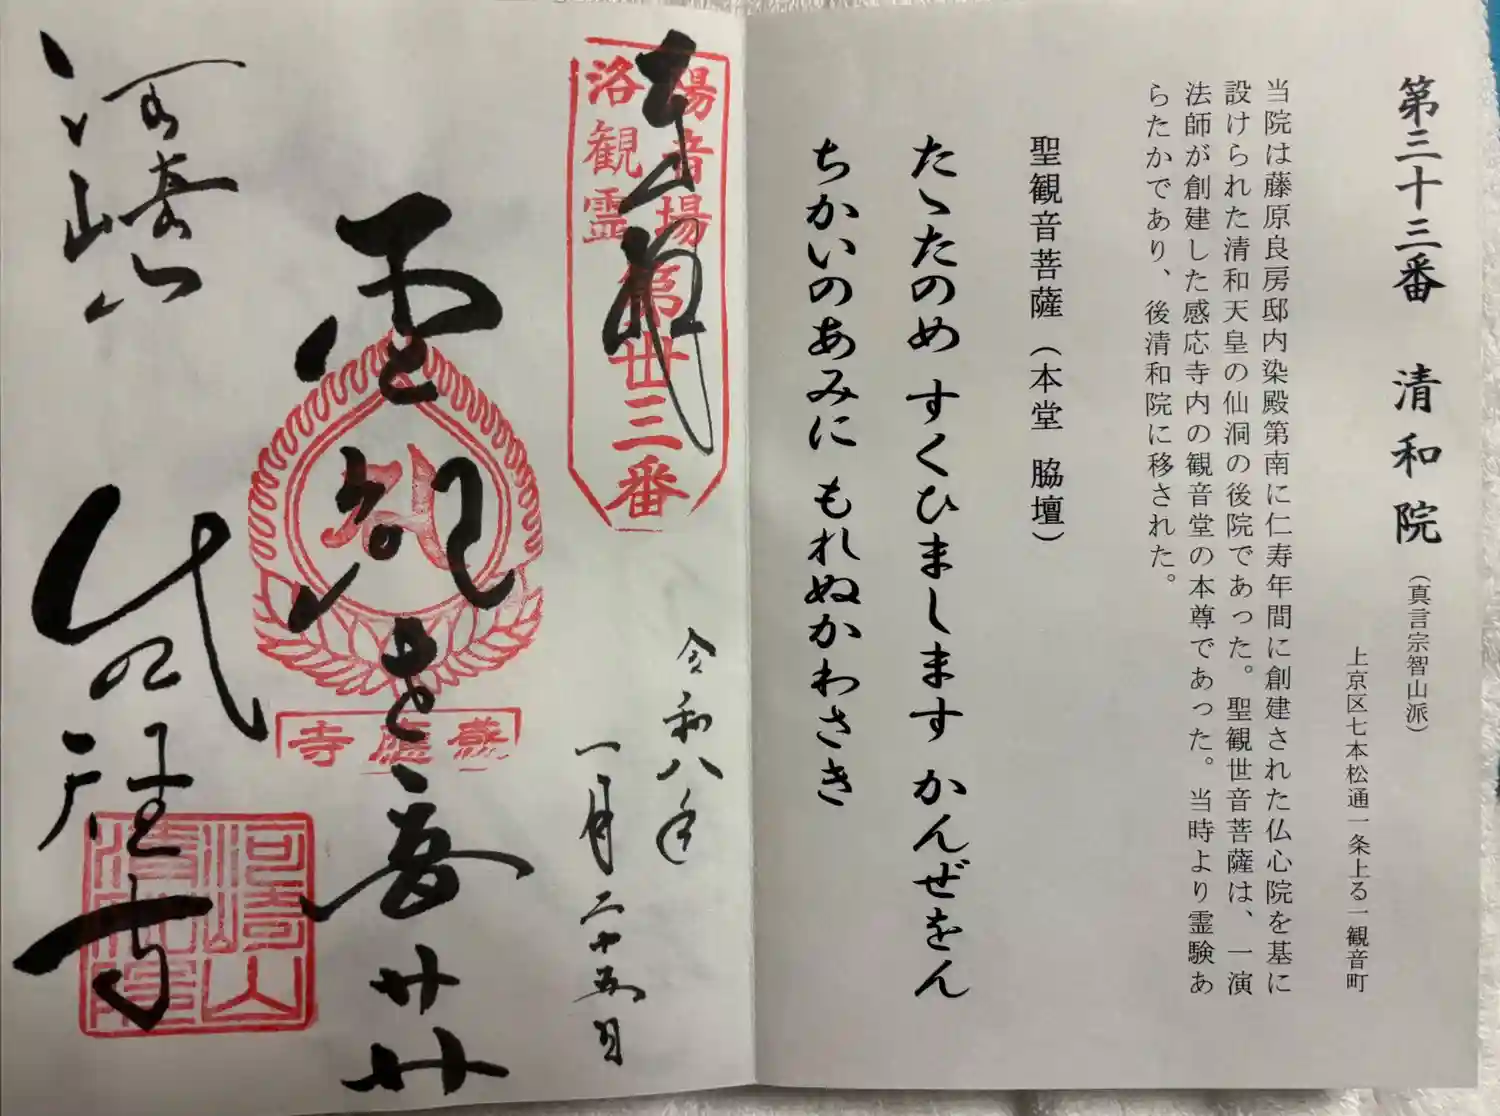 第三十三番 清和院（真言宗智山派）
上京区七本松通一条上る一観音町
当院は藤原良房邸内染殿第南に仁寿年間に創建された仏心院を基に
設けられた清和天皇の仙洞の後院であった。聖観世音菩薩は、一演
法師が創建した感応寺内の観音堂の本尊であった。当時より霊験あ
らたかであり、後清和院に移された。
聖観音菩薩（本堂 脇壇）
たゝたのめ すくひまします かんぜをん
ちかいのあみに もれぬかわさき
奉拝
洛陽
観音
霊場
第丗三番
令和八年
一月二十五日
感應寺
河﨑山
感應寺
河崎山
清和院